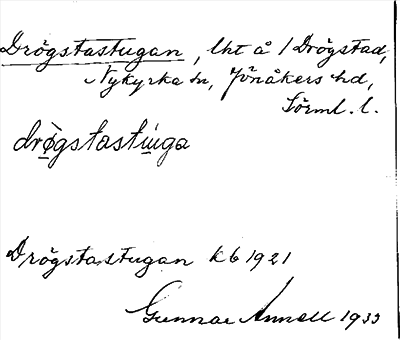 Drögstastugan, lht å /Drögstad,
Nykyrka sn, Jönåkers hd,
Sörml. l.
drøgstastuga
Drögstastugan kb 1921
Gunnar Annell 1933